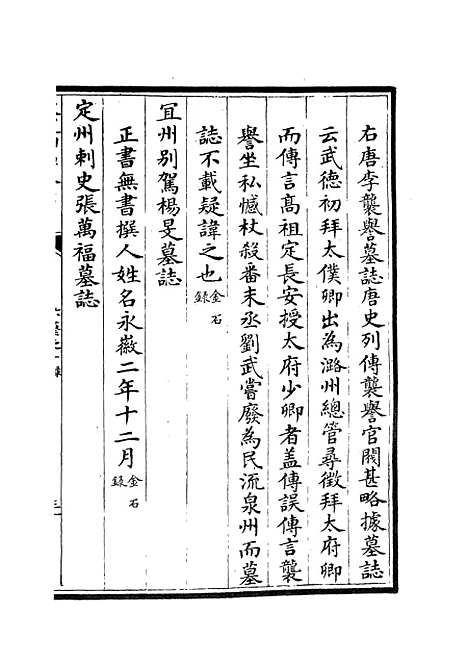 右唐李襲譽墓誌唐史列傳襲譽官閥甚略據墓誌
云武德初拜太僕卿出為潞州總管尋徵拜太府卿
而傳言髙祖定長安授太府少卿者盖傳誤傳言襲
譽坐私憾杖殺番禾丞劉武嘗廢為民流泉州而墓
誌不載疑諱之也金石錄
宜州别駕楊旻墓誌
正書無書撰人姓名永徽二年十二月金石錄
定州刺史張萬福墓誌